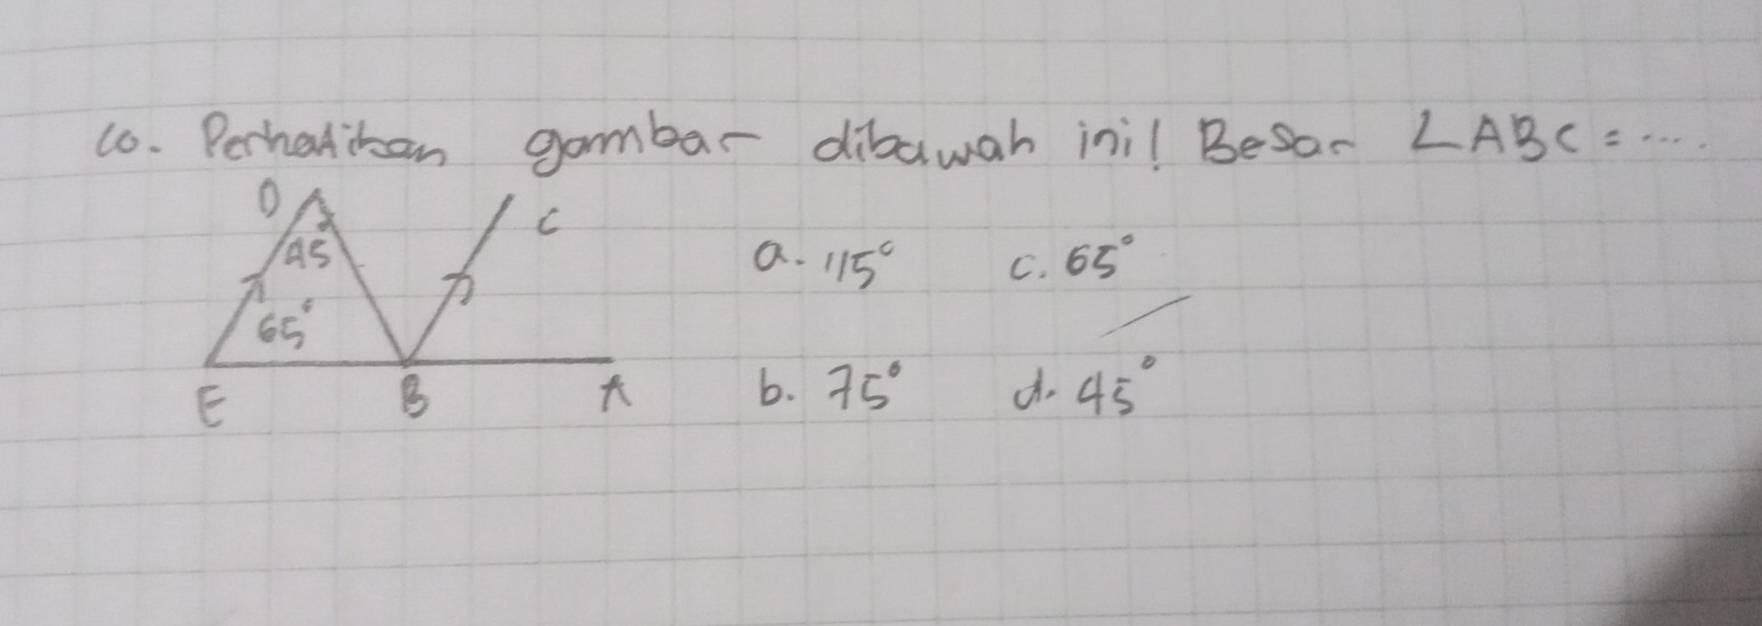 10. Perhatikan gambar dibawah ini! Besar ∠ABC = ....
D
C
45
65°
E B A
a. 115° c. 65°
b. 75° d. 45°